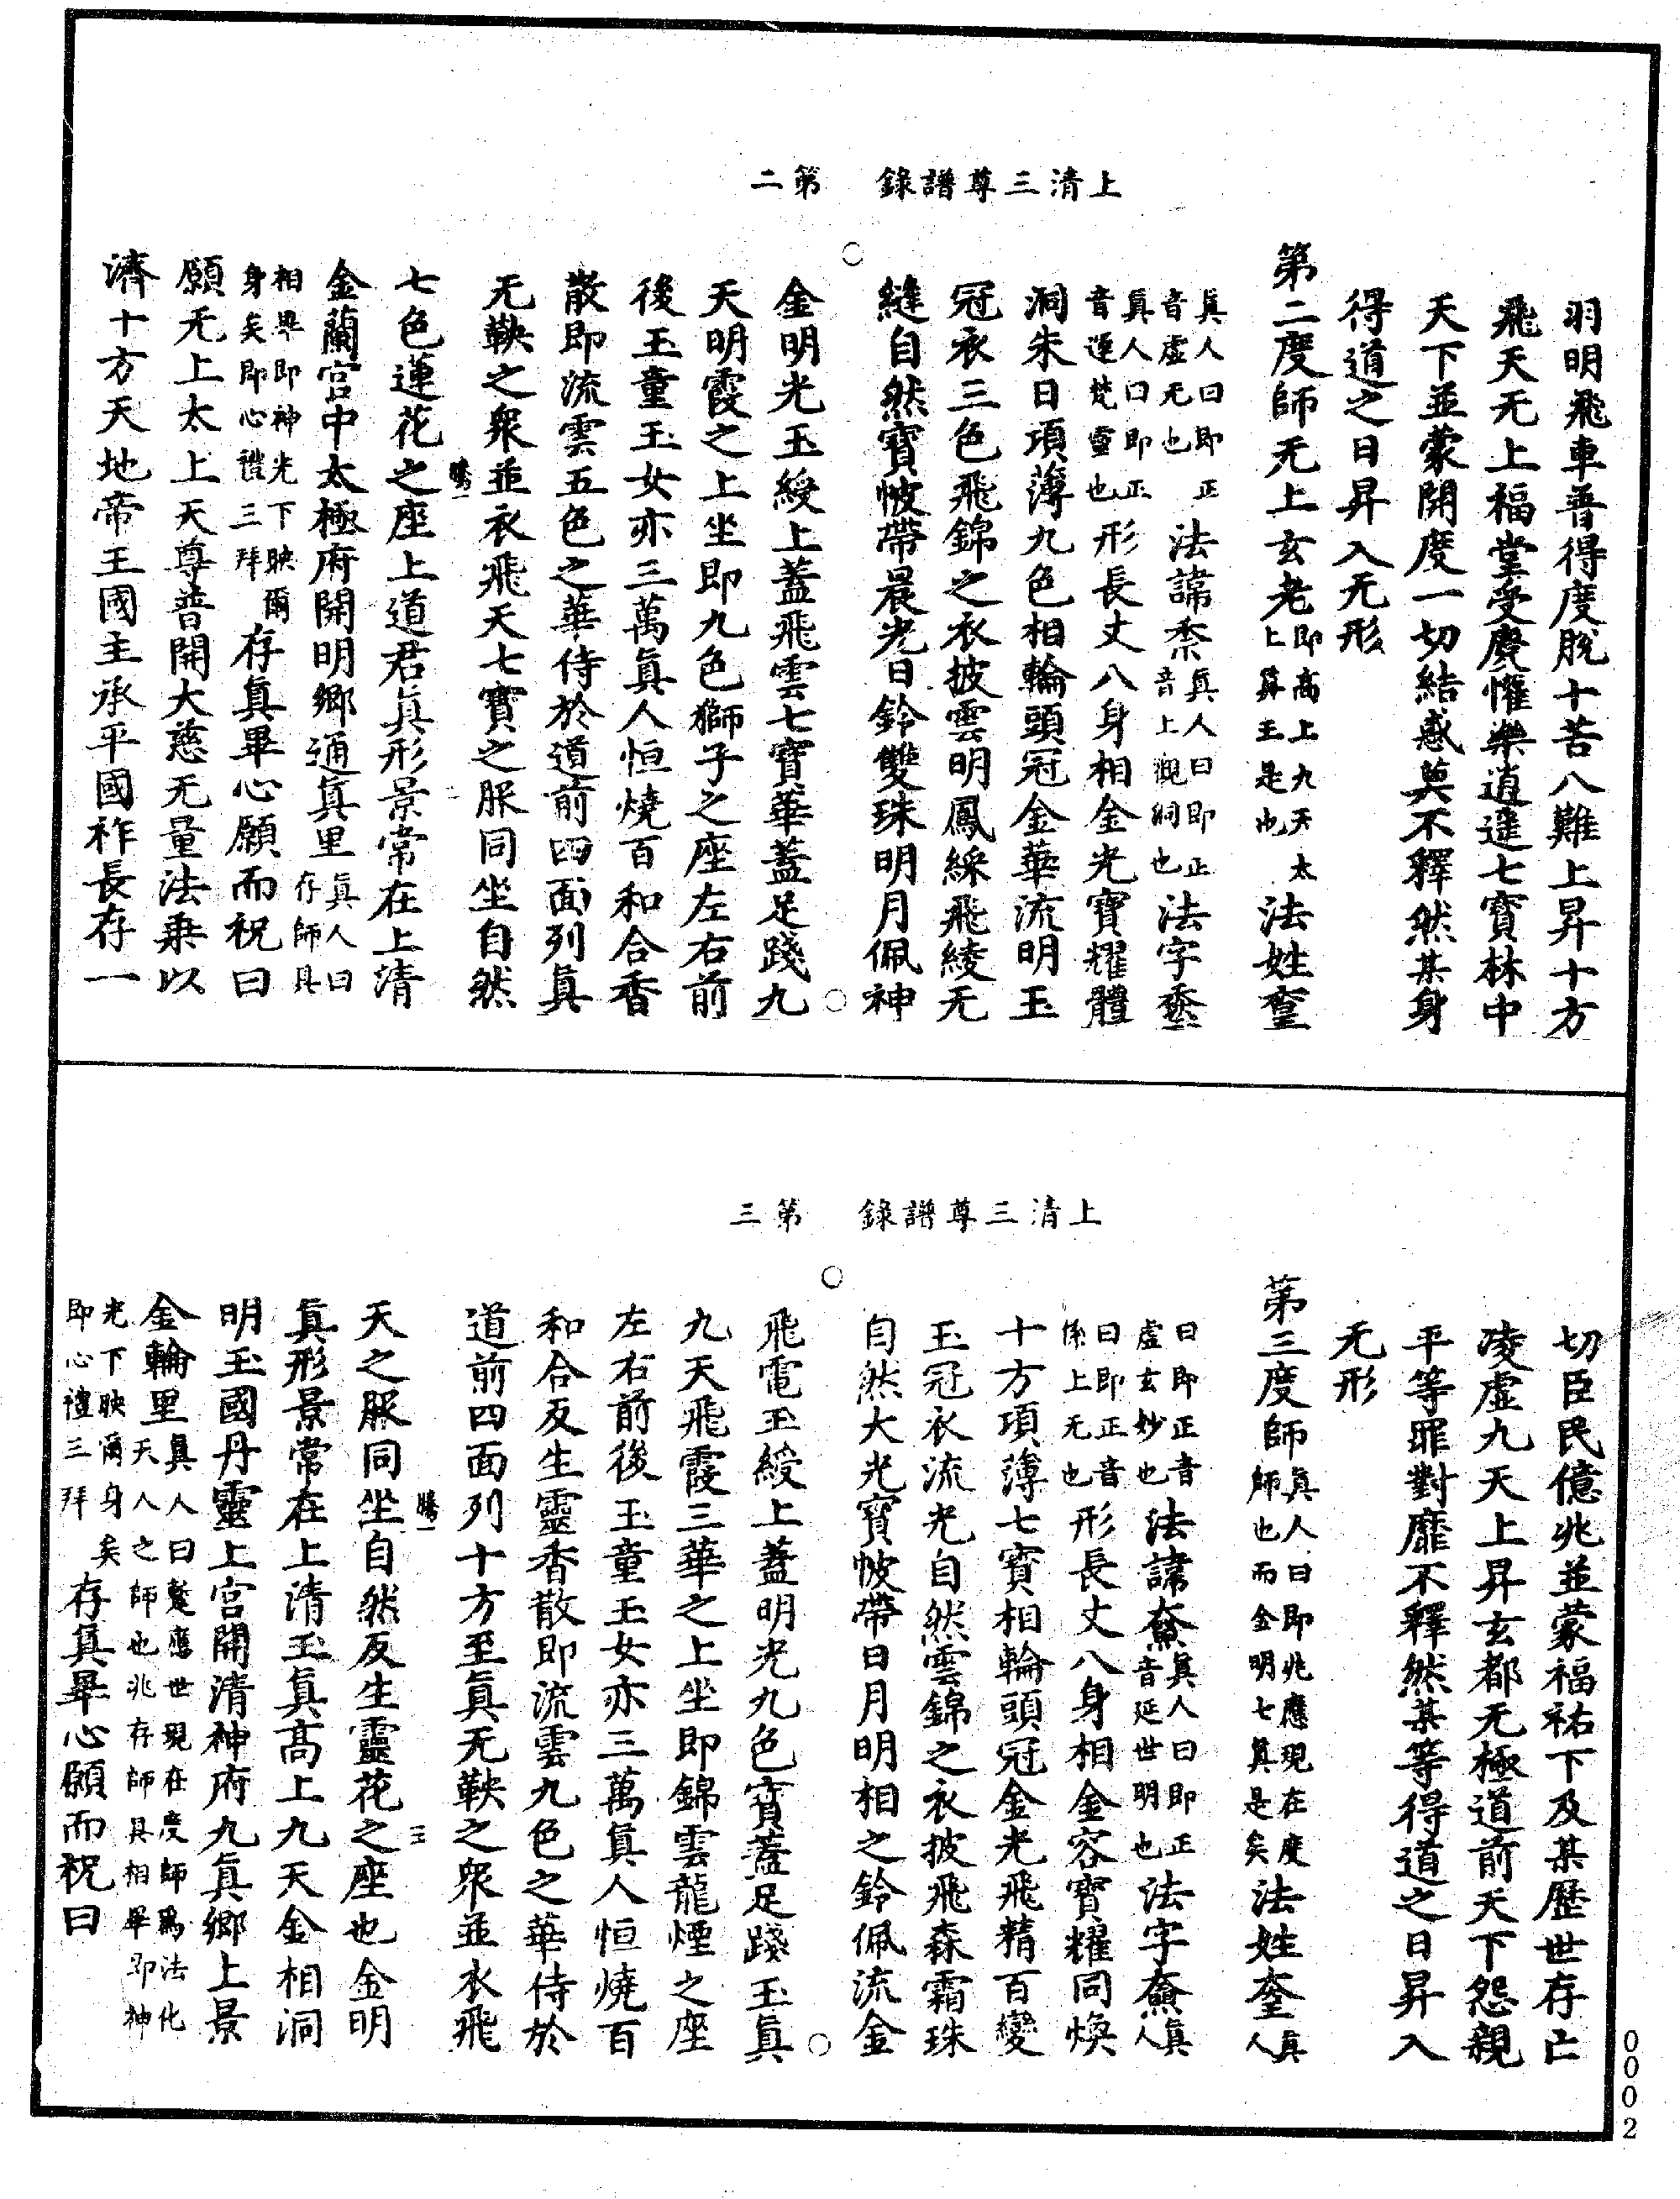 上清三尊譜錄　第二
羽明飛車普得度脫十苦八難上昇十方
飛天无上福堂受慶懽樂逍遙七寶林中
天下並蒙開度一切結惑莫不釋然某身
得道之日昇入无形
第二度師无上玄老即高上九天太上算王是也法姓
真人曰即正音虛无也法諱真人曰即正音上觀洞也法字
真人曰即正音運梵靈也形長丈八身相金光寶耀體
洞朱日項薄九色相輪頭冠金華流明玉
冠衣三色飛錦之衣披雲明鳳綵飛綾无
縫自然寶帔帶晨光日鈴雙珠明月佩神
金明光玉綬上蓋飛雲七寶華蓋足踐九
天明霞之上坐即九色獅子之座左右前
後玉童玉女亦三萬真人恒燒百和合香
散即流雲五色之華侍於道前四面列真
无鞅之衆並衣飛天七寶之服同坐自然
七色蓮花之座上道君真形景常在上清
金蘭宮中太極府開明鄉通真里真人曰存師具
相畢即神光下映爾身矣即心禮三拜存真畢心願而祝曰
願无上太上天尊普開大慈无量法乘以
濟十方天地帝王國主承平國祚長存一
上清三尊譜錄　第三
切臣民億兆並蒙福祐下及某歷世存亡
凌虛九天上昇玄都无極道前天下怨親
平等罪對靡不釋然某等得道之日昇入
无形
第三度師真人曰即兆應現在度師也而金明七真是矣法姓真人
曰即正音虛玄妙也法諱真人曰即正音延世明也法字真人
曰即正音係上无也形長丈八身相金容寶耀同煥
十方項薄七寶相輪頭冠金光飛精百變
玉冠衣流光自然雲錦之衣披飛森霜珠
自然大光寶帔帶日月明相之鈴佩流金
飛電玉綬上蓋明光九色寶蓋足踐玉真
九天飛霞三華之上坐即錦雲龍煙之座
左右前後玉童玉女亦三萬真人恒燒百
和合反生靈香散即流雲九色之華侍於
道前四面列十方至真无鞅之衆並衣飛
天之服同坐自然反生靈花之座也金明
真形景常在上清玉真高上九天金相洞
明玉國丹靈上宮開清神府九真鄉上景
金輪里真人曰應世現在度師爲法化天人之師也兆存師具相畢即神
光下映爾身矣即心禮三拜存真畢心願而祝曰
0002